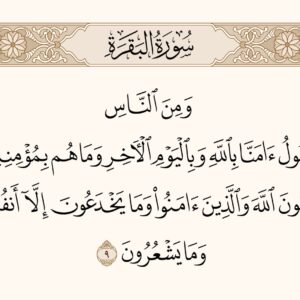 سُورَةُ البَقَرَةِ
وَمِنَ ٱلنَّاسِ
ءَامَنَّا بِٱللَّهِ وَبِٱلۡيَوۡمِ ٱلۡأٓخِرِ وَمَا هُم
ٱللَّهَ وَٱلَّذِينَ ءَامَنُواْ وَمَا يَخۡدَعُونَ إِلَّآ
وَمَا يَشۡعُرُونَ ٩